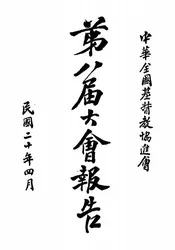 中華全國基督教協進會
第八屆大會報告
民國二十年四月